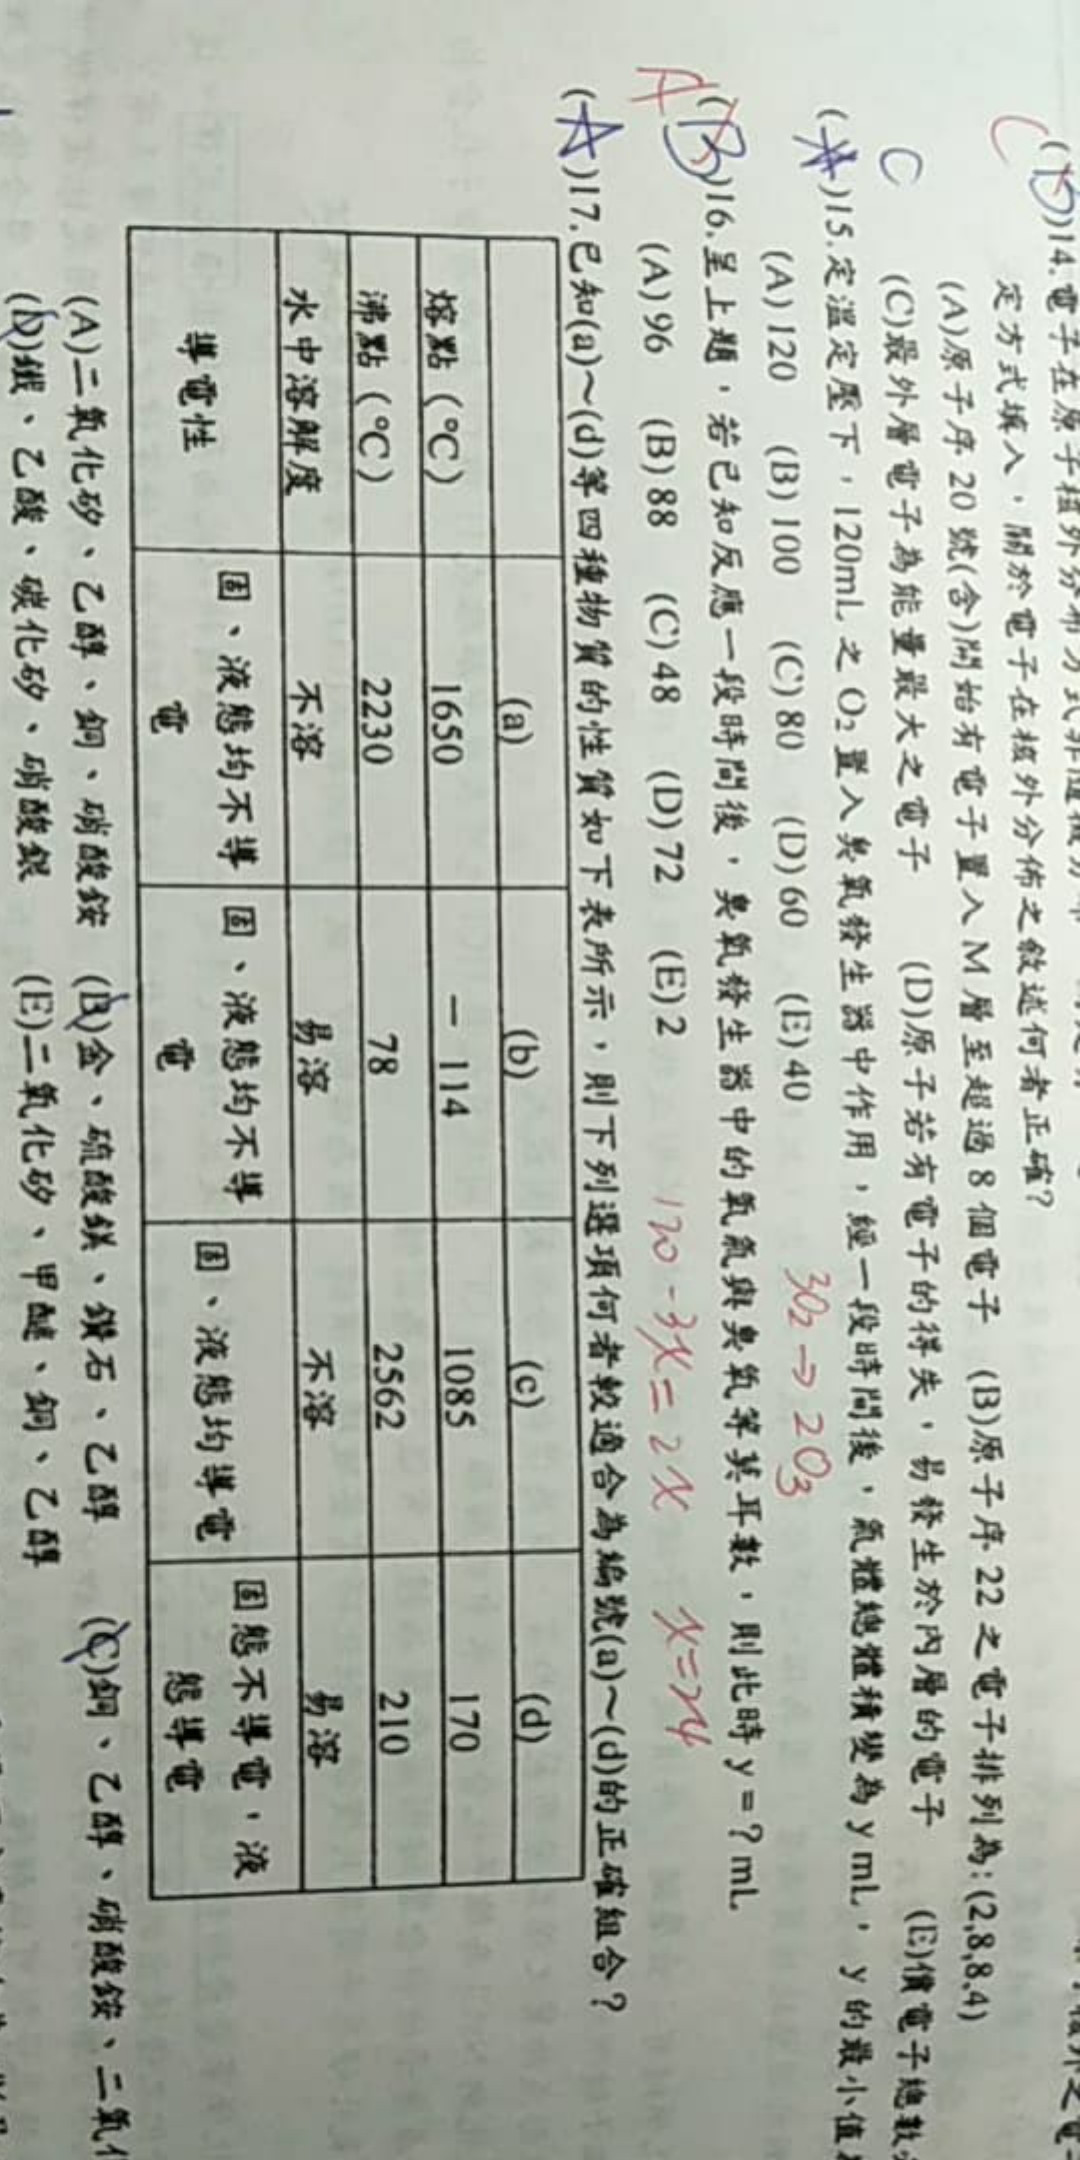 C
(B)14.電子在原子核外分布方式非隨機分布
定方式填入，關於電子在核外分佈之敘述何者正確？
(A)原子序 20 號(含)開始有電子置入 M 層至超過 8 個電子 (B)原子序 22 之電子排列為:(2,8,8,4)
(C)最外層電子為能量最大之電子 (D)原子若有電子的得失，易發生於內層的電子 (E)價電子總數
C
( )15.定溫定壓下，120mL 之 O₂ 置入臭氧發生器中作用，經一段時間後，氣體總體積變為 y mL，y 的最小值
(A)120 (B)100 (C)80 (D)60 (E)40
3O₂ → 2O₃
A
(B)16.呈上題，若已知反應一段時間後，臭氧發生器中的氧氣與臭氧等莫耳數，則此時 y = ? mL
(A)96 (B)88 (C)48 (D)72 (E)2
120 - 3x = 2x x=24
(A)17.已知(a)～(d)等四種物質的性質如下表所示，則下列選項何者較適合為編號(a)～(d)的正確組合？
(a) (b) (c) (d)
熔點 (°C) 1650 － 114 1085 170
沸點 (°C) 2230 78 2562 210
水中溶解度 不溶 易溶 不溶 易溶
導電性 固、液態均不導電 固、液態均不導電 固、液態均導電 固態不導電，液態導電
(A)二氧化矽、乙醇、銅、硝酸銨 (B)金、硫酸鎂、鑽石、乙醇 (C)銅、乙醇、硝酸銨、二氧化
(D)鐵、乙酸、碳化矽、硝酸銀 (E)二氧化矽、甲醚、銅、乙醇